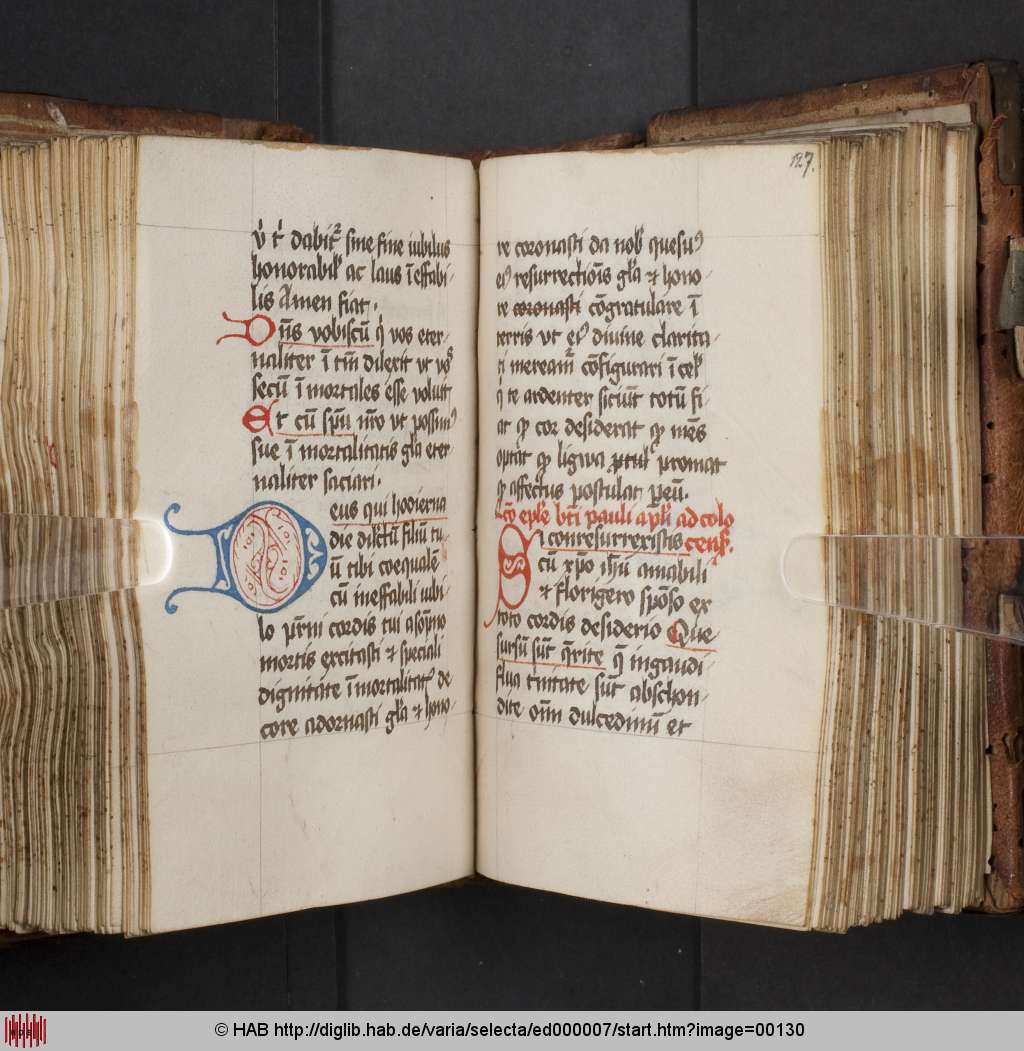 v̓ t̓ dabit᷑ sine fine iubilus
honorabil' ac laus ī effabi-
lis Amen fiat.
Dn̄s vobiscū q̓ vos eter-
naliter ī tm̄ dilexit vt vos
secū ī mortales esse voluit
Et cū spū nr̄o vt possimꝰ
sue ī mortalitatis gl'a eter
naliter saciari.
Deus qui hodierna
die dilc̄tū filiū tu-
ū tibi coequalē
cū ineffabili iubi-
lo pr̄ni cordis tui a sop̄no
mortis excitasti ⁊ speciali
dignitate ī mortalitat᷑ de
core adornasti gl'a ⁊ hono-
127.
re coronasti da nob' quesuꝰ
eiꝰ resurrectiōis gl'a ⁊ hono
re coronasti cōgratulare ī
terris vt eiꝰ diuine clarita-
ti meream̄ cōfigurari ī cel'
q̓ te ardenter siciūt totū fi-
at qp cor desiderat qp mēs
optat qp ligwa ꝓtul' promat
qp affectus postulat ꝑ eū.
Lc̄o epl'e bt̄i pauli apl'i ad colo
Si conresurrexistis cens'.
cū xp̄o ih̄u amabili
⁊ florigero spōso ex
toto cordis desiderio Que
sursū sūt q̄rite q̄ in gaudi-
flua t'nitate sūt abschon-
dite om̄ dulcedinū et
© HAB http://diglib.hab.de/varia/selecta/ed000007/start.htm?image=00130